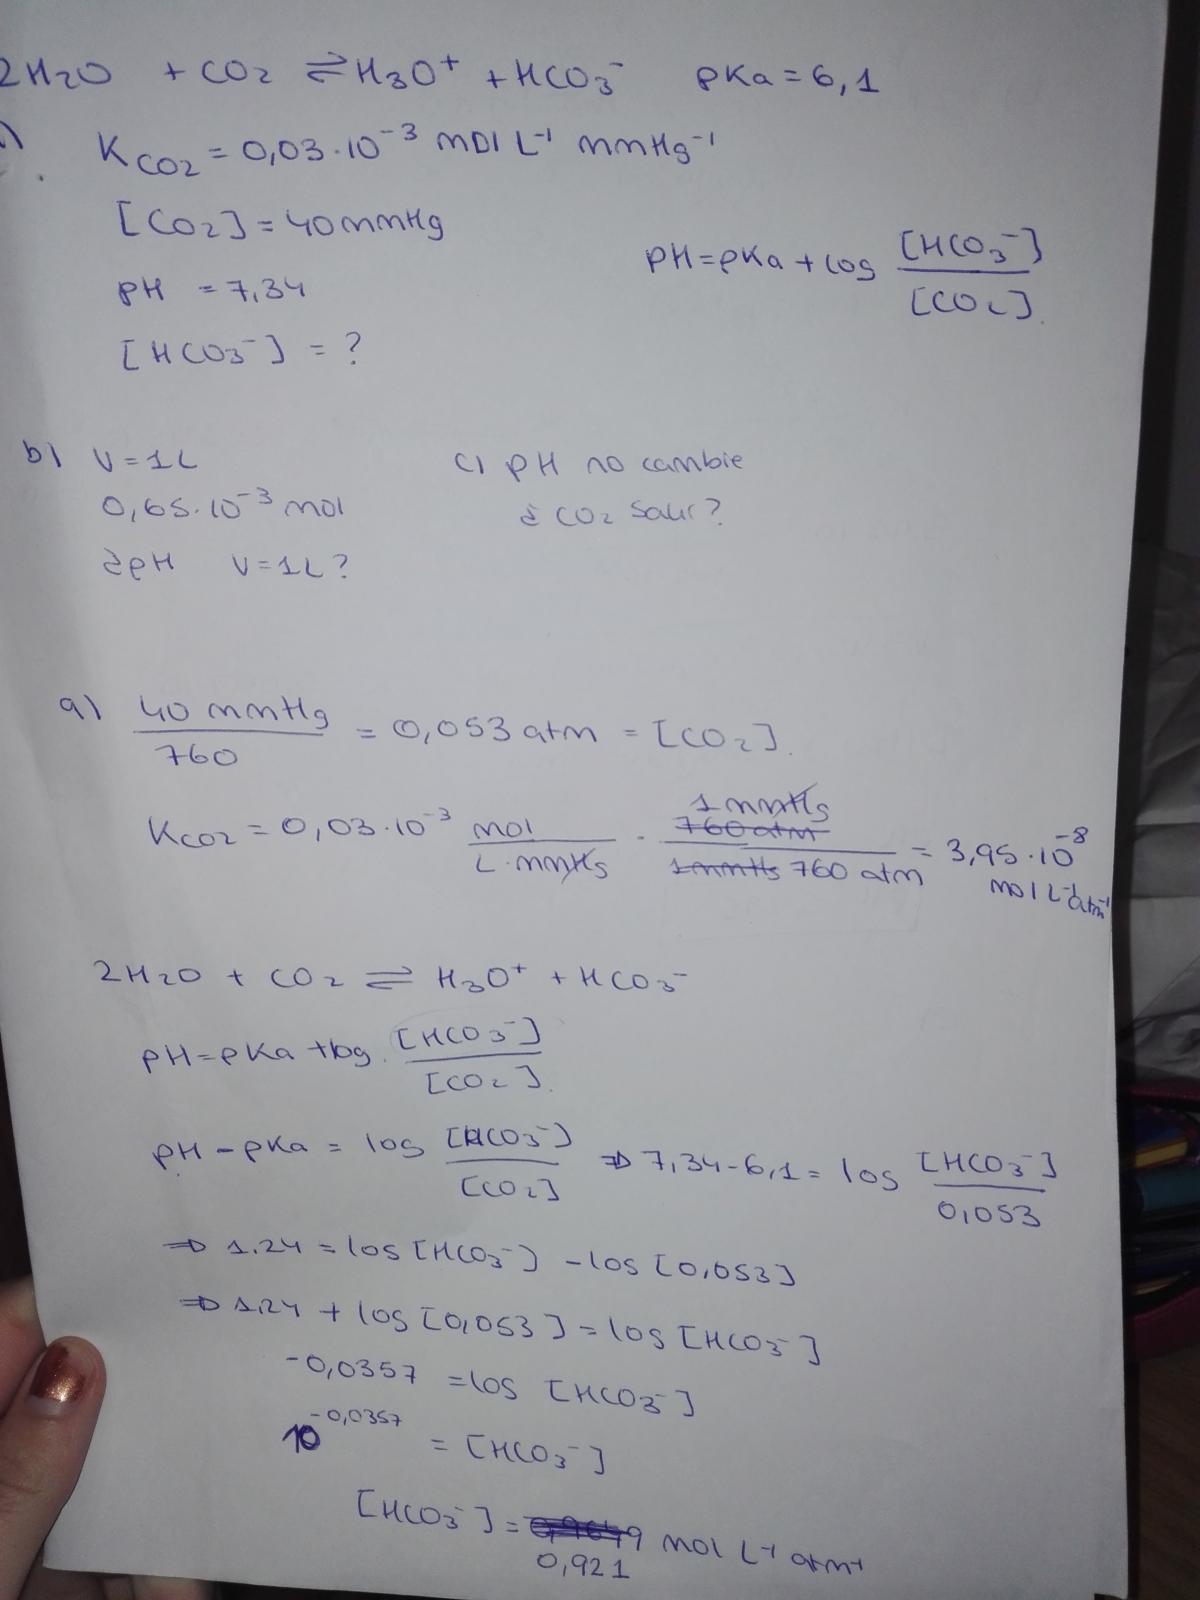 2H2O + CO2 ⇌ H3O+ + HCO3- pKa = 6,1
KCO2 = 0,03·10^-3 mol L^-1 mmHg^-1
[CO2] = 40 mmHg
pH = 7,34
pH = pKa + log [HCO3-] / [CO2]
[HCO3-] = ?
b) V = 1L
0,65·10^-3 mol
¿pH V = 1L?
c) pH no cambie
¿ CO2 salir?
a) 40 mmHg / 760 = 0,053 atm = [CO2].
KCO2 = 0,03·10^-3 mol / L·mmHg · 1 mmHg 760 atm / 1mmHg 760 atm = 3,95·10^-8 mol L^-1 atm^-1
2H2O + CO2 ⇌ H3O+ + HCO3-
pH = pKa + log. [HCO3-] / [CO2].
pH - pKa = log [HCO3-] / [CO2] ⇒ 7,34 - 6,1 = log [HCO3-] / 0,053
⇒ 1.24 = log [HCO3-] - log [0,053]
⇒ 1,24 + log [0,053] = log [HCO3-]
-0,0357 = log [HCO3-]
10^-0,0357 = [HCO3-]
[HCO3-] = 0,921 mol L^-1 atm^-1